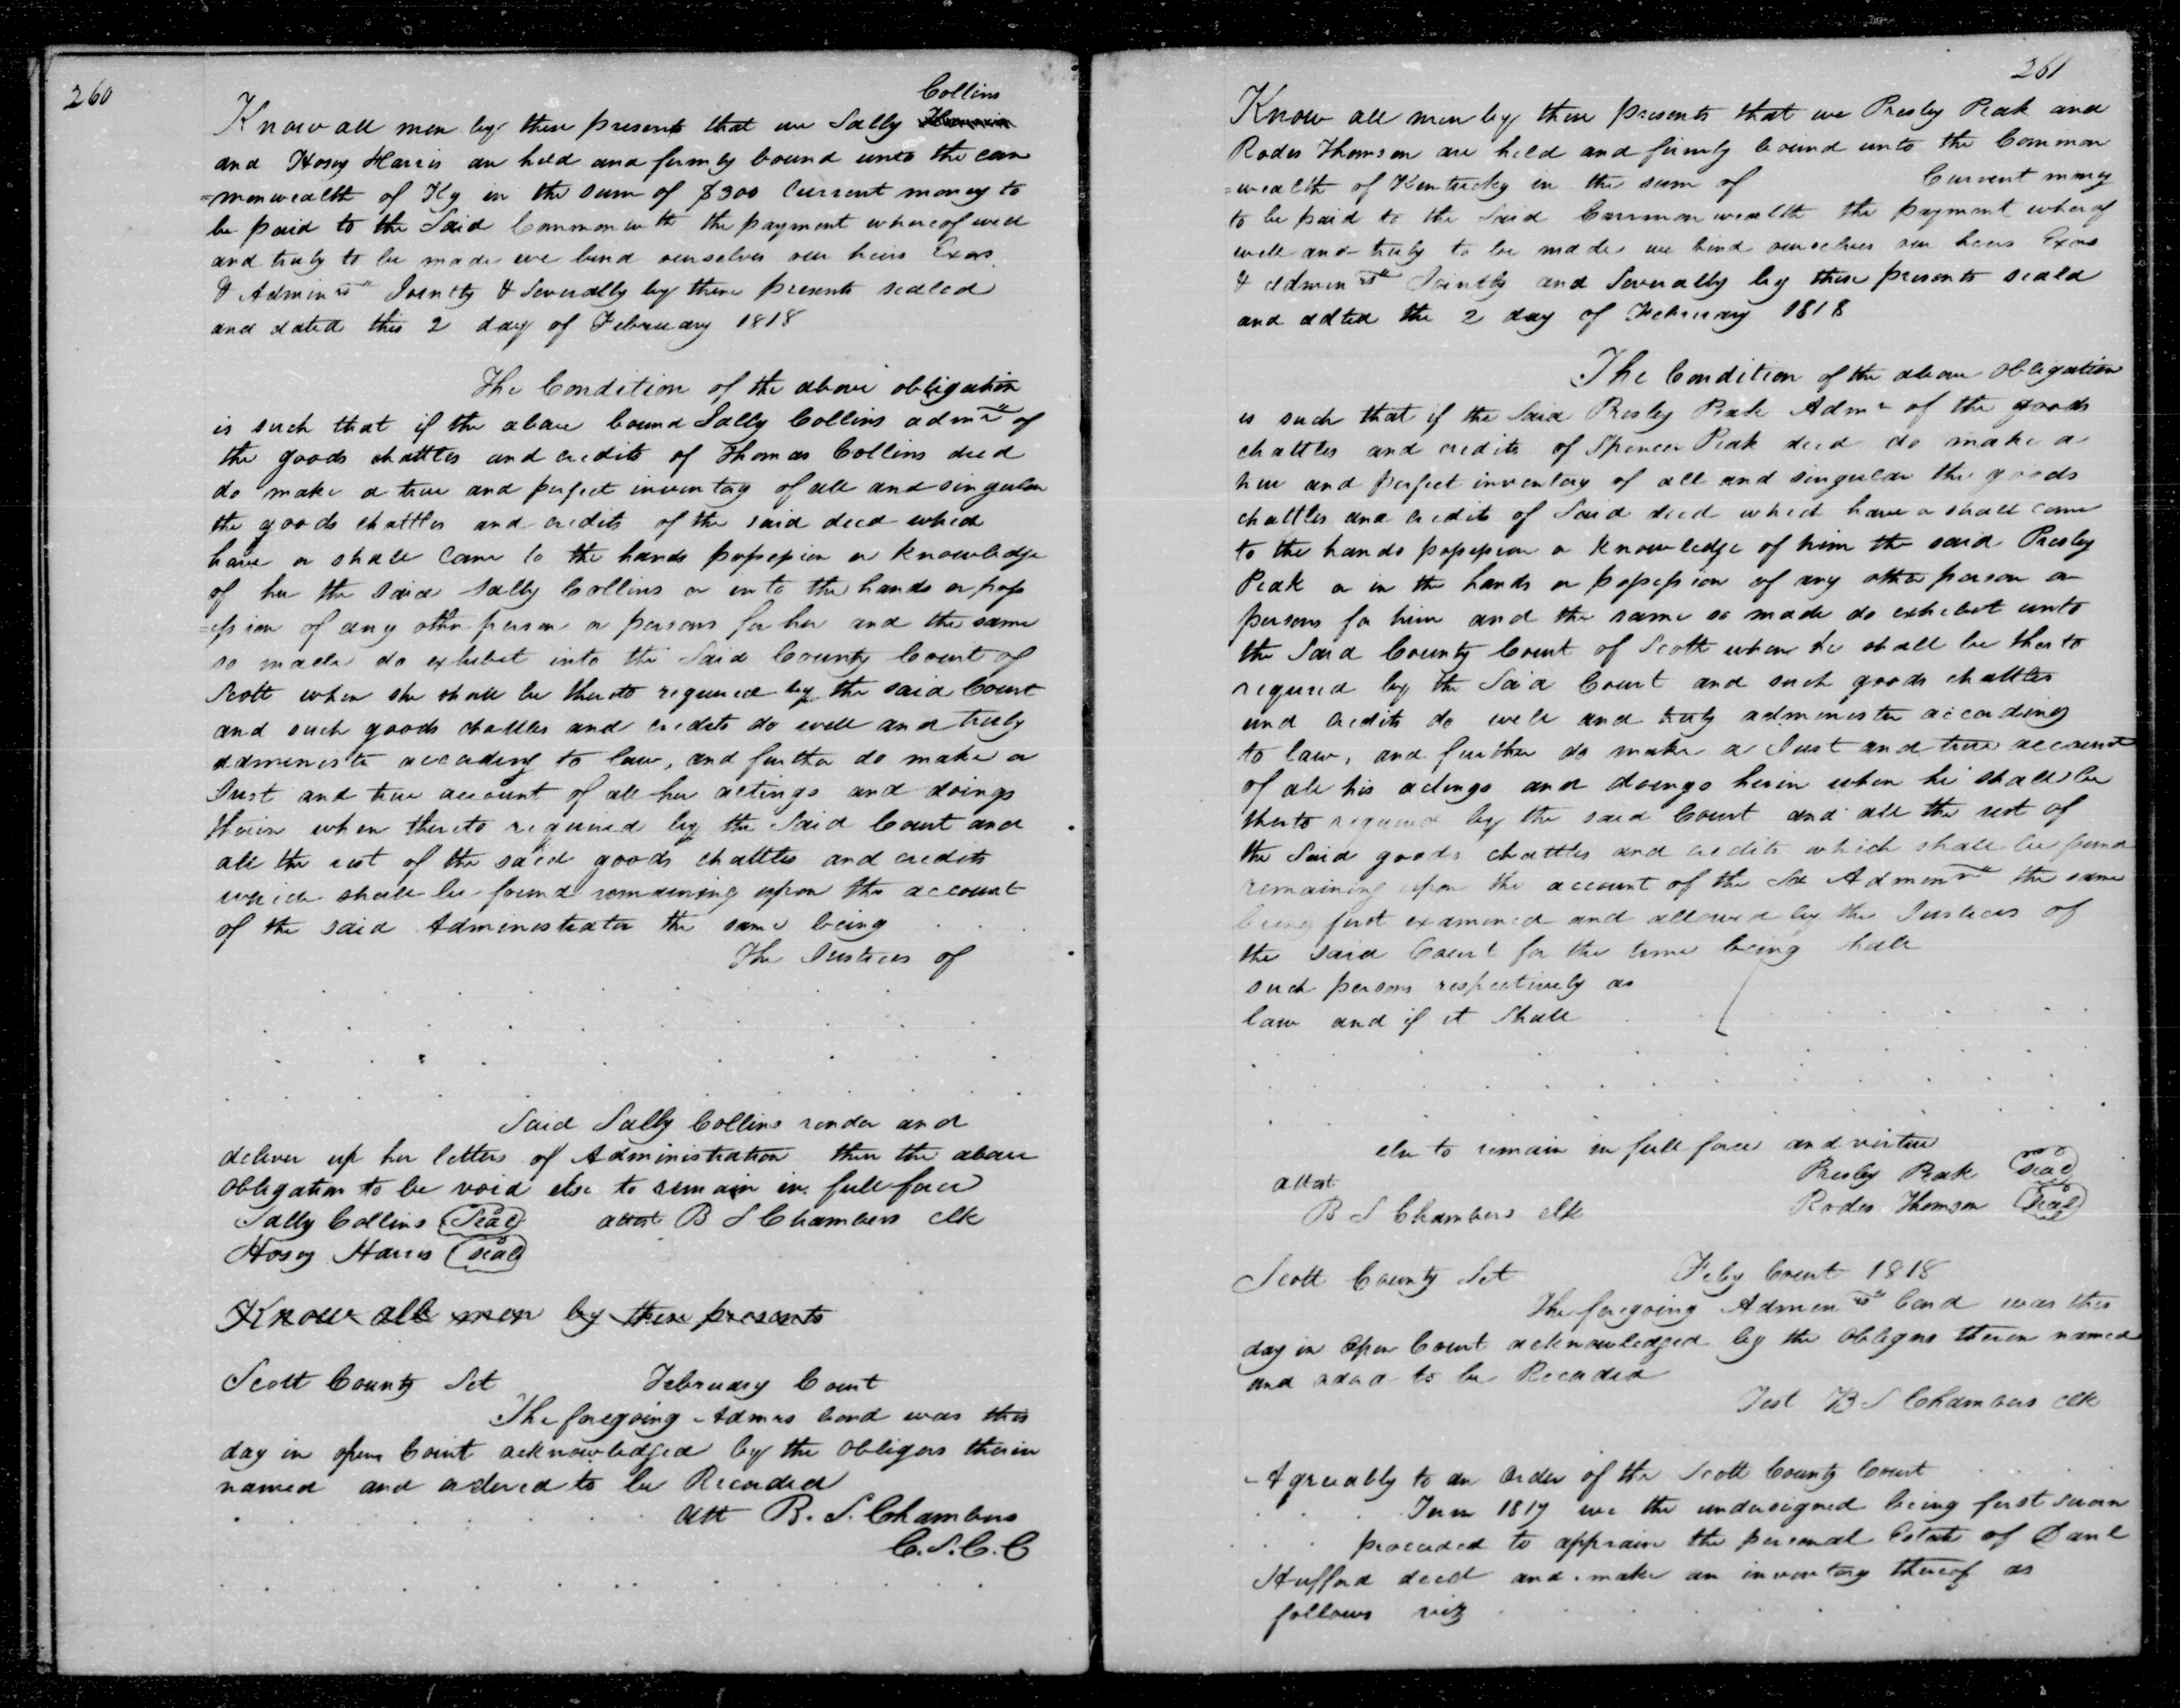 260
Collins
Know all men by these presents that we Sally
and Hosey Harris are held and firmly bound unto the com
=monwealth of Ky in the sum of $300 Current money to
be paid to the Said Commonwth the payment whereof well
and truly to be made we bind ourselves our heirs Exors
& Adminrs Jointly & Severally by these presents sealed
and dated this 2 day of February 1818
The Condition of the above obligation
is such that if the above bound Sally Collins admrx of
the goods chattles and credits of Thomas Collins decd
do make a true and perfect inventory of all and singular
the goods chattles and credits of the said decd which
have or shall come to the hands possession or knowledge
of her the said Sally Collins or into the hands or poss
=ession of any other person or persons for her and the same
so made do exhibit into the Said County Court of
Scott when she shall be thereto required by the said Court
and such goods chattles and credits do well and truly
administer according to law, and further do make a
Just and true account of all her actings and doings
therein when thereto required by the Said Court and
all the rest of the said goods chattles and credits
which shall be found remaining upon the account
of the said Administrator the same being
The Justices of
Said Sally Collins render and
deliver up her letters of Administration then the above
obligation to be void else to remain in full force
Sally Collins Seal attest B S Chambers clk
Hosey Harris Seal
Know all men by these presents
Scott County Sct February Court
The foregoing Admrs bond was this
day in open Court acknowledged by the obligors therein
named and ordered to be Recorded
Att B. S. Chambers
C.S.C.C
261
Know all men by these presents that we Presley Peak and
Rodes Thomson are held and firmly bound unto the Common
=wealth of Kentucky in the sum of Current money
to be paid to the Said Commonwealth the payment wherof
well and truly to be made we bind ourselves our heirs Exors
& Adminrs Jointly and Severally by these presents seald
and dated the 2 day of February 1818
The Condition of the above obligation
is such that if the Said Presley Peak Admr of the goods
chattles and credits of Spencer Peak decd do make a
true and perfect inventory of all and singular the goods
chattles and credits of Said decd which have or shall come
to the hands possession or knowledge of him the said Presley
Peak or in the hands or possession of any other person or
persons for him and the same so made do exhibit unto
the Said County Court of Scott when he shall be therto
required by the Said Court and such goods chattles
and credits do well and truly administer according
to law, and further do make a Just and true account
of all his actings and doings herin when he shall be
therto required by the said Court and all the rest of
the Said goods chattles and credits which shall be found
remaining upon the account of the Sd Adminr the same
being first examined and allowed by the Justices of
the said Court for the time being shall
such persons respectively as
law and if it Shall
else to remain in full force and virtue
attest Presley Peak Seal
B S Chambers clk Rodes Thomson Seal
Scott County Sct Feby Court 1818
The foregoing Adminrs bond was this
day in Open Court acknowledged by the obligors therein named
and ordd to be Recorded
Test B S Chambers clk
Agreeably to an Order of the Scott County Court
Term 1817 we the undersigned being first sworn
proceeded to appraise the personal Estate of Danl
Hufford decd and make an inventory thereof as
follows viz